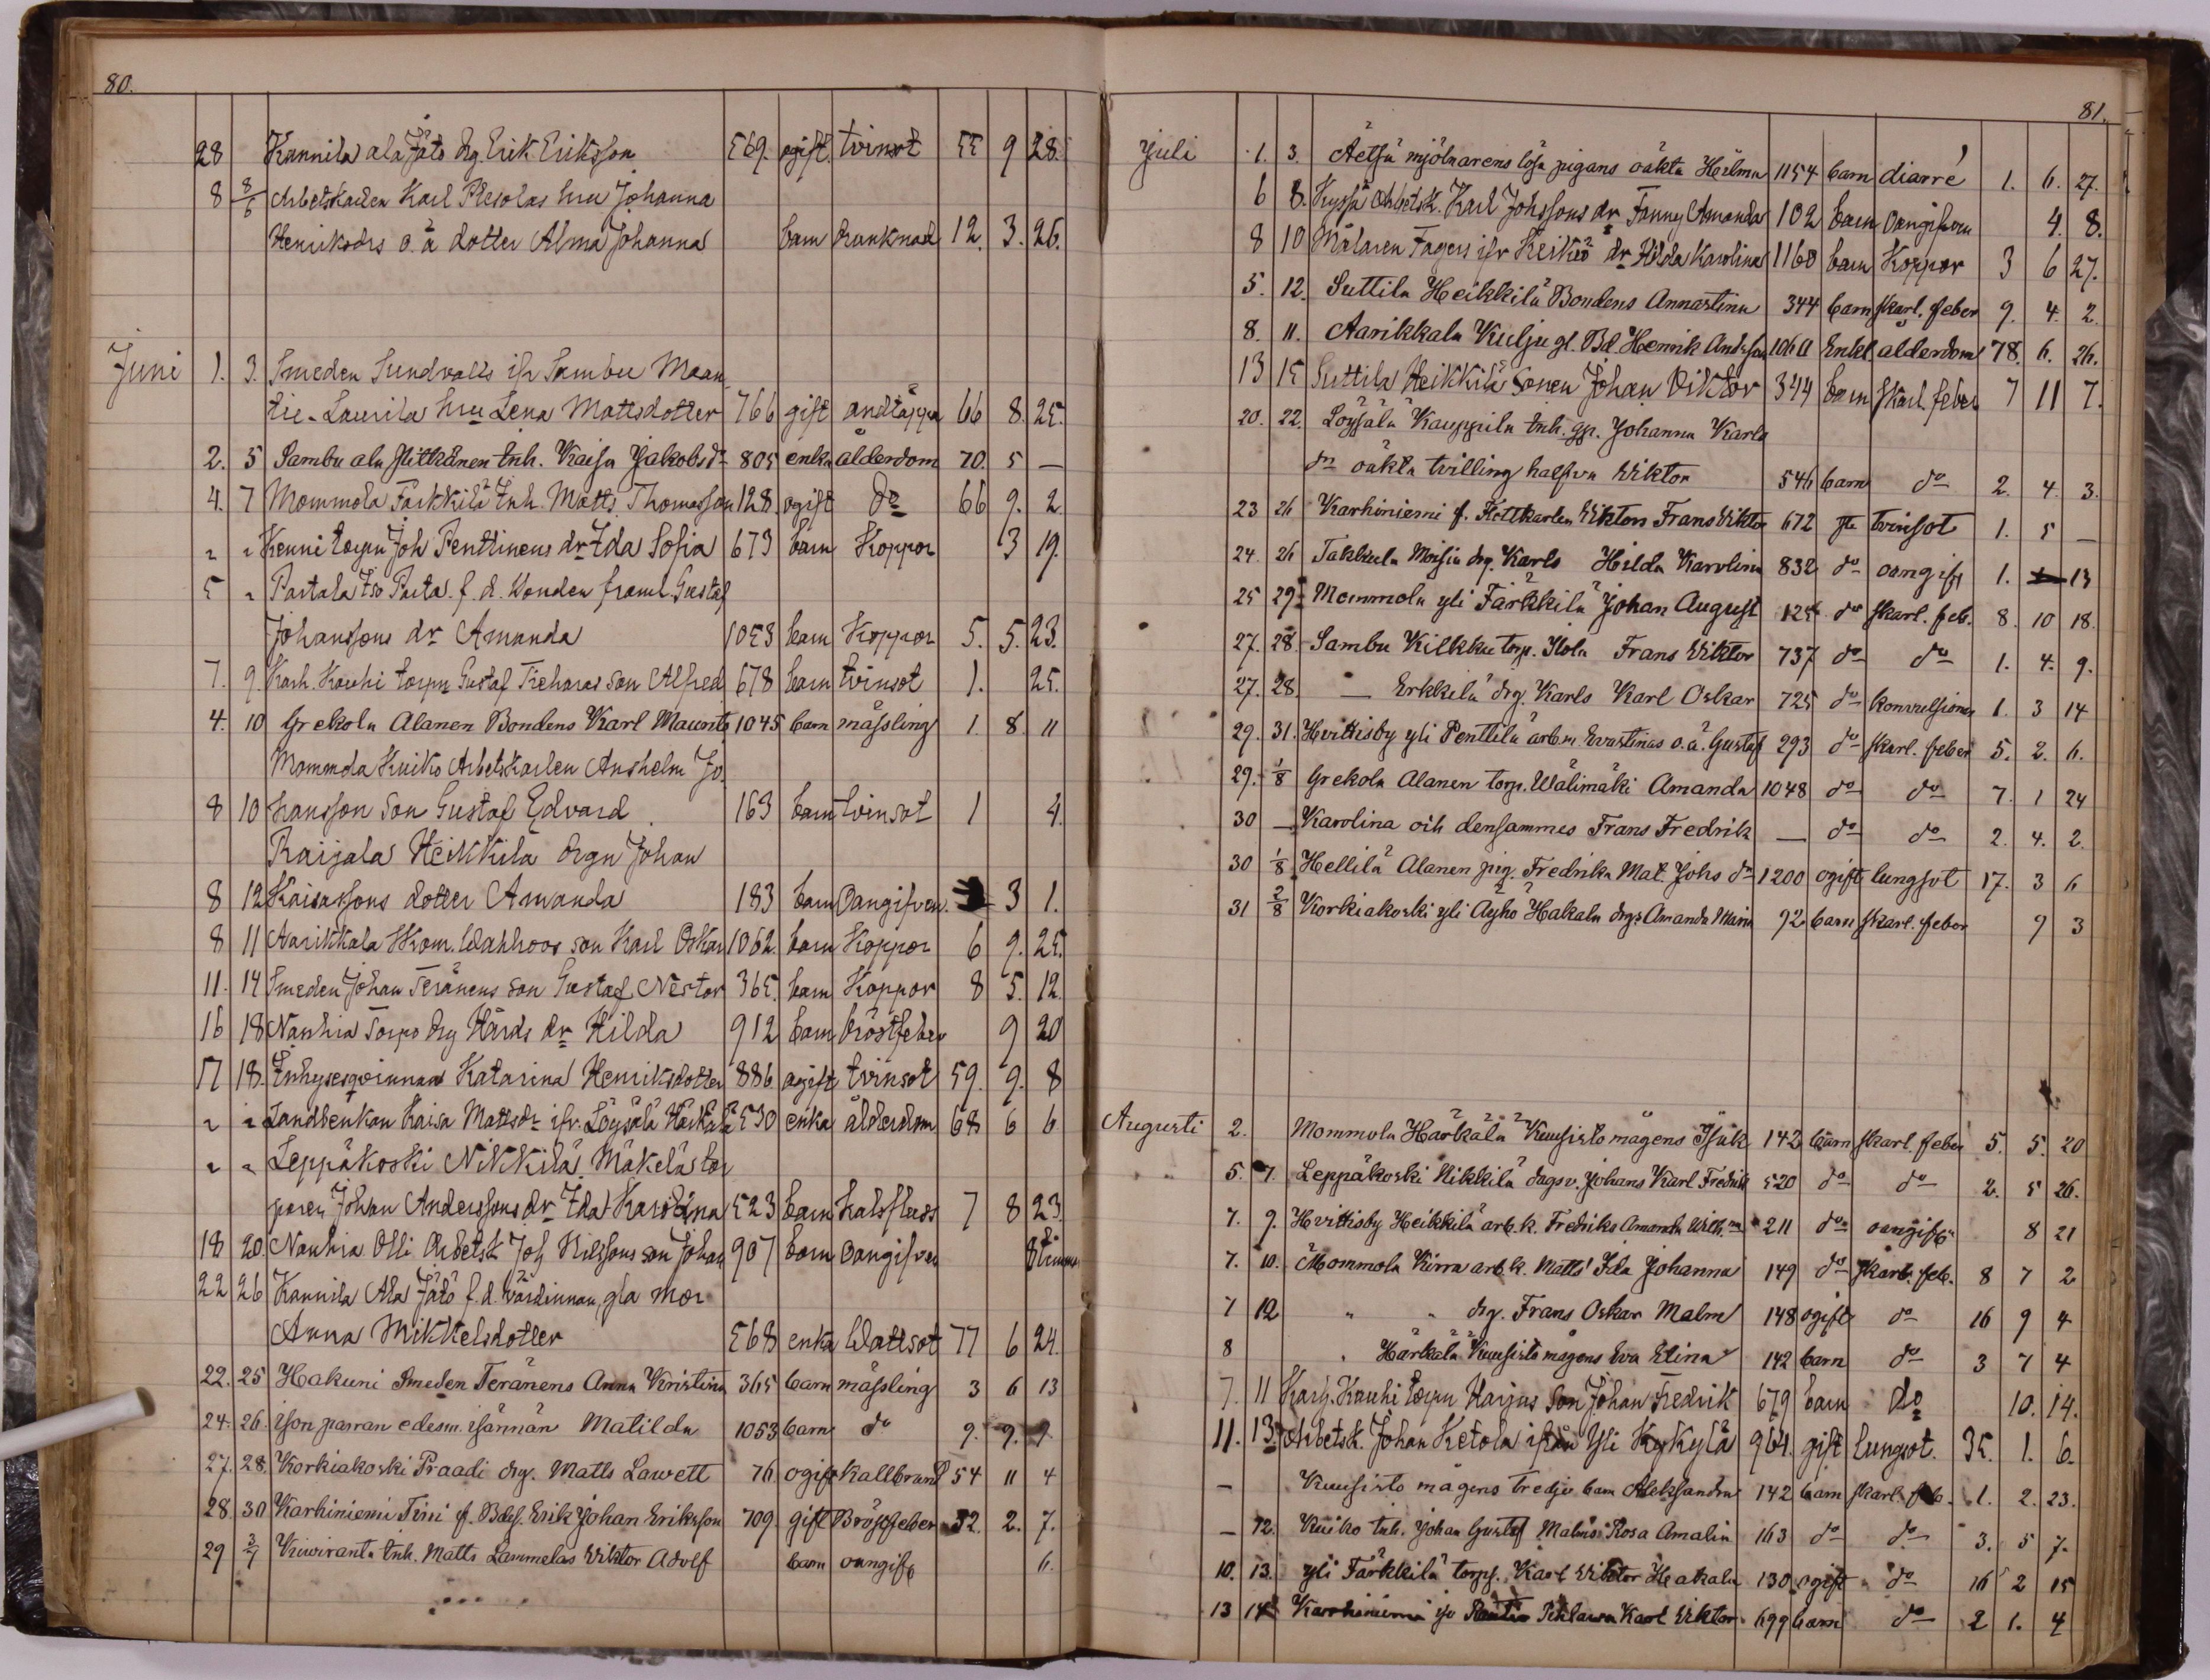 80.
28 Kannila ala Jäts drg Erik Eriksson 569. ogift. tvinsot 55 9 28.
8 8/6 Arbetskarlen Karl Plesolas hru Johanna
Henriksdrs o.ä dotter Alma Johanna barn drunknad 12. 3. 26.
Juni 1. 3. Smeden Sundvalls ifr Sambu Maan
tie-Laurila hru Lena Mattsdotter 766 gift andtäppa 66 8. 25.
2. 5 Sambu ala Flitkänen inh. Kaisa Jakobsdr 805 enka ålderdom 70. 5 —
4. 7 Mommola Farkkila inh. Matts Thomasson 128. ogift do 66 9. 2.
" " Kenni torpn Joh Penttinens dr Ida Sofia 673 barn Koppor 3 19.
5 " Partala Iso Parta f. d. Bonden framl. Gustaf
Johanssons dr Amanda 1053 barn Koppor 5. 5. 23.
7. 9. Karh. Kauhi torpn Gustaf Fieharas son Alfred 678 barn tvinsot 1. 25.
4. 10 Grekola Alanen Bondens Karl Maurits 1045 barn mässling 1. 8. 11
Mommola Kuiko Arbetskarlen Anshelm Jo
8 10 hansson son Gustaf Edvard 163 barn tvinsot 1 4.
Raijala Heikkilä drgn Johan
8 12 Kaisaksons dotter Amanda 183 barn Oangifven. 3 1.
8 11 Aarikkala Skom. Wahlroos son Karl Oskar 1062. barn Koppor 6 9. 25.
11. 14 Smeden Johan Teränens son Gustaf Nestor 365. barn Koppor 8 5. 12.
16 18 Nanhia Torpo drg Härds dr Hilda 912 barn bröstfeber 9 20
17 18. Inhysesqvinnan Katarina Henriksdotter 886 ogift tvinsot 59. 9. 8
" " Landbenkan Kaisa Mattsdr ifr. Löysälä Härkälä 530 enka ålderdom 68 6 6
" " Leppäkoski Nikkilä Mäkelä tor
paren Johan Anderssons dr Ida Karolina 523 barn halsfluss 7 8 23.
18 20. Nanhia Olli Arbetsk Joh Nilssons son Johan 907 barn Oangifven 8 timmar
22 26 Kannila Ala Jäts f. d. värdinnan, gla mor
Anna Mikkelsdotter 568 enka Wattsot 77 6 24.
22. 25 Hakuni Smeden Teränens Anna Kristina 365 barn mässling 3 6 13
24. 26. ison parran edesm. isännän Matilda 1053 barn do 9. 9. 9
27. 28. Korkiakoski Praadi drg. Matts Lawett 76 ogift Kallbrand 54 11 4
28. 30 Karhiniemi Tini f. Bdes. Erik Johan Eriksson 709. gift Bröstfeber 32. 2. 7.
29 3/7 Kiwiranta inh. Matts Lammelas Viktor Adolf barn oangift 6.
81.
Juli 1. 3. Äetsä mjölnarens lösa pigans oäkta Hilma 1154 barn diarré 1. 6. 27.
6 8. Kyssä Arbetsk. Karl Johssons dr Fanny Amanda 102 barn oangifven 4. 8.
8 10 Målaren Fagers ifr Keikiö dr Hilda Karolina 1160 barn Koppor 3 6 27.
5. 12. Suttila Heikkilä Bondens Annastina 344 barn skarl. feber 9. 4. 2.
8. 11. Aarikkala Kulju gl. Bd. Henrik Andersson 1060 Enkl. alderdom 78. 6. 26.
13 15 Suttila Heikkilä sonen Johan Viktor 344 barn skarl. feber 7 11 7.
20. 22. Löysälä Kauppila inh. gp. Johanna Karls
dr oäkta tvilling halfva Viktor 546 barn do 2. 4. 3.
23 26 Karhiniemi f. Kettkarlen Viktors Frans Viktor 672 do tvinsot 1. 5 —
24. 26 Takkula Moisia drg. Karls Hilda Karolina 832 do oangift 1. 13
25 29. Mommola yli Färkkilä Johan August 125 do skarl. feb. 8. 10 18.
27. 28. Sambu Kilkku torp. Ilola Frans Viktor 737 do do 1. 4. 9.
27. 28. — Erkkilä drg. Karls Karl Oskar 725 do konvulsioner 1. 3 14
29. 31. Hvittisby yli Penttilä arb.m. Evastinas o.ä. Gustaf 293 do skarl. feber 5. 2. 6.
29. 1/8 Grekola Alanen torp. Wälimäki Amanda 1048 do do 7. 1 24
30 — Karolina och densammes Frans Fredrik — do do 2. 4. 2.
30 1/8 Hellilä Alanen pig. Fredrika Mat. Johs dr 1200 ogift lungsot 17. 3 6
31 2/8 Korkiakoski yli Äyhö Hakala drgs Amanda Maria 92 barn skarl. feber 9 3
Augusti 2. Mommola Härkälä Kuusisto mågens Isak 142 barn skarl. feber 5. 5. 20
5. 7. Leppäkoski Nikkilä dagsv. Johans Karl Fredrik 520 do do 2. 5 26.
7. 9. Hvittisby Heikkilä arb. k. Fredriks Amanda Wilh:na 211 do oangift 8 21
7. 10. Mommola Kirra arb. k. Matts' Ida Johanna 149 do skarl. feb. 8 7 2
7 12 " " drg. Frans Oskar Malm 148 ogift do 16 9 4
8 " Härkälä Kuusisto mågens Eva Stina 142 barn do 3 7 4
7. 11 Karh. Kauhi torpn Harjus son Johan Fredrik 679 barn do 10. 14.
11. 13. Arbetsk. Johan Ketola ifrån Yli Kykylä 964. gift lungsot. 35. 1. 6.
— Kuusisto mågens tredje barn Aleksandra 142 barn skarl. feb. 1. 2. 23.
— 12. Kuiko inh. Johan Gustaf Malms Rosa Amalia 163 do do 3. 5 7.
10. 13. yli Färkkilä torps. Karl Viktor Hakala 130 ogift do 16 2 15
13 14 Karhiniemi Karl Viktor 699 barn do 2 1. 4